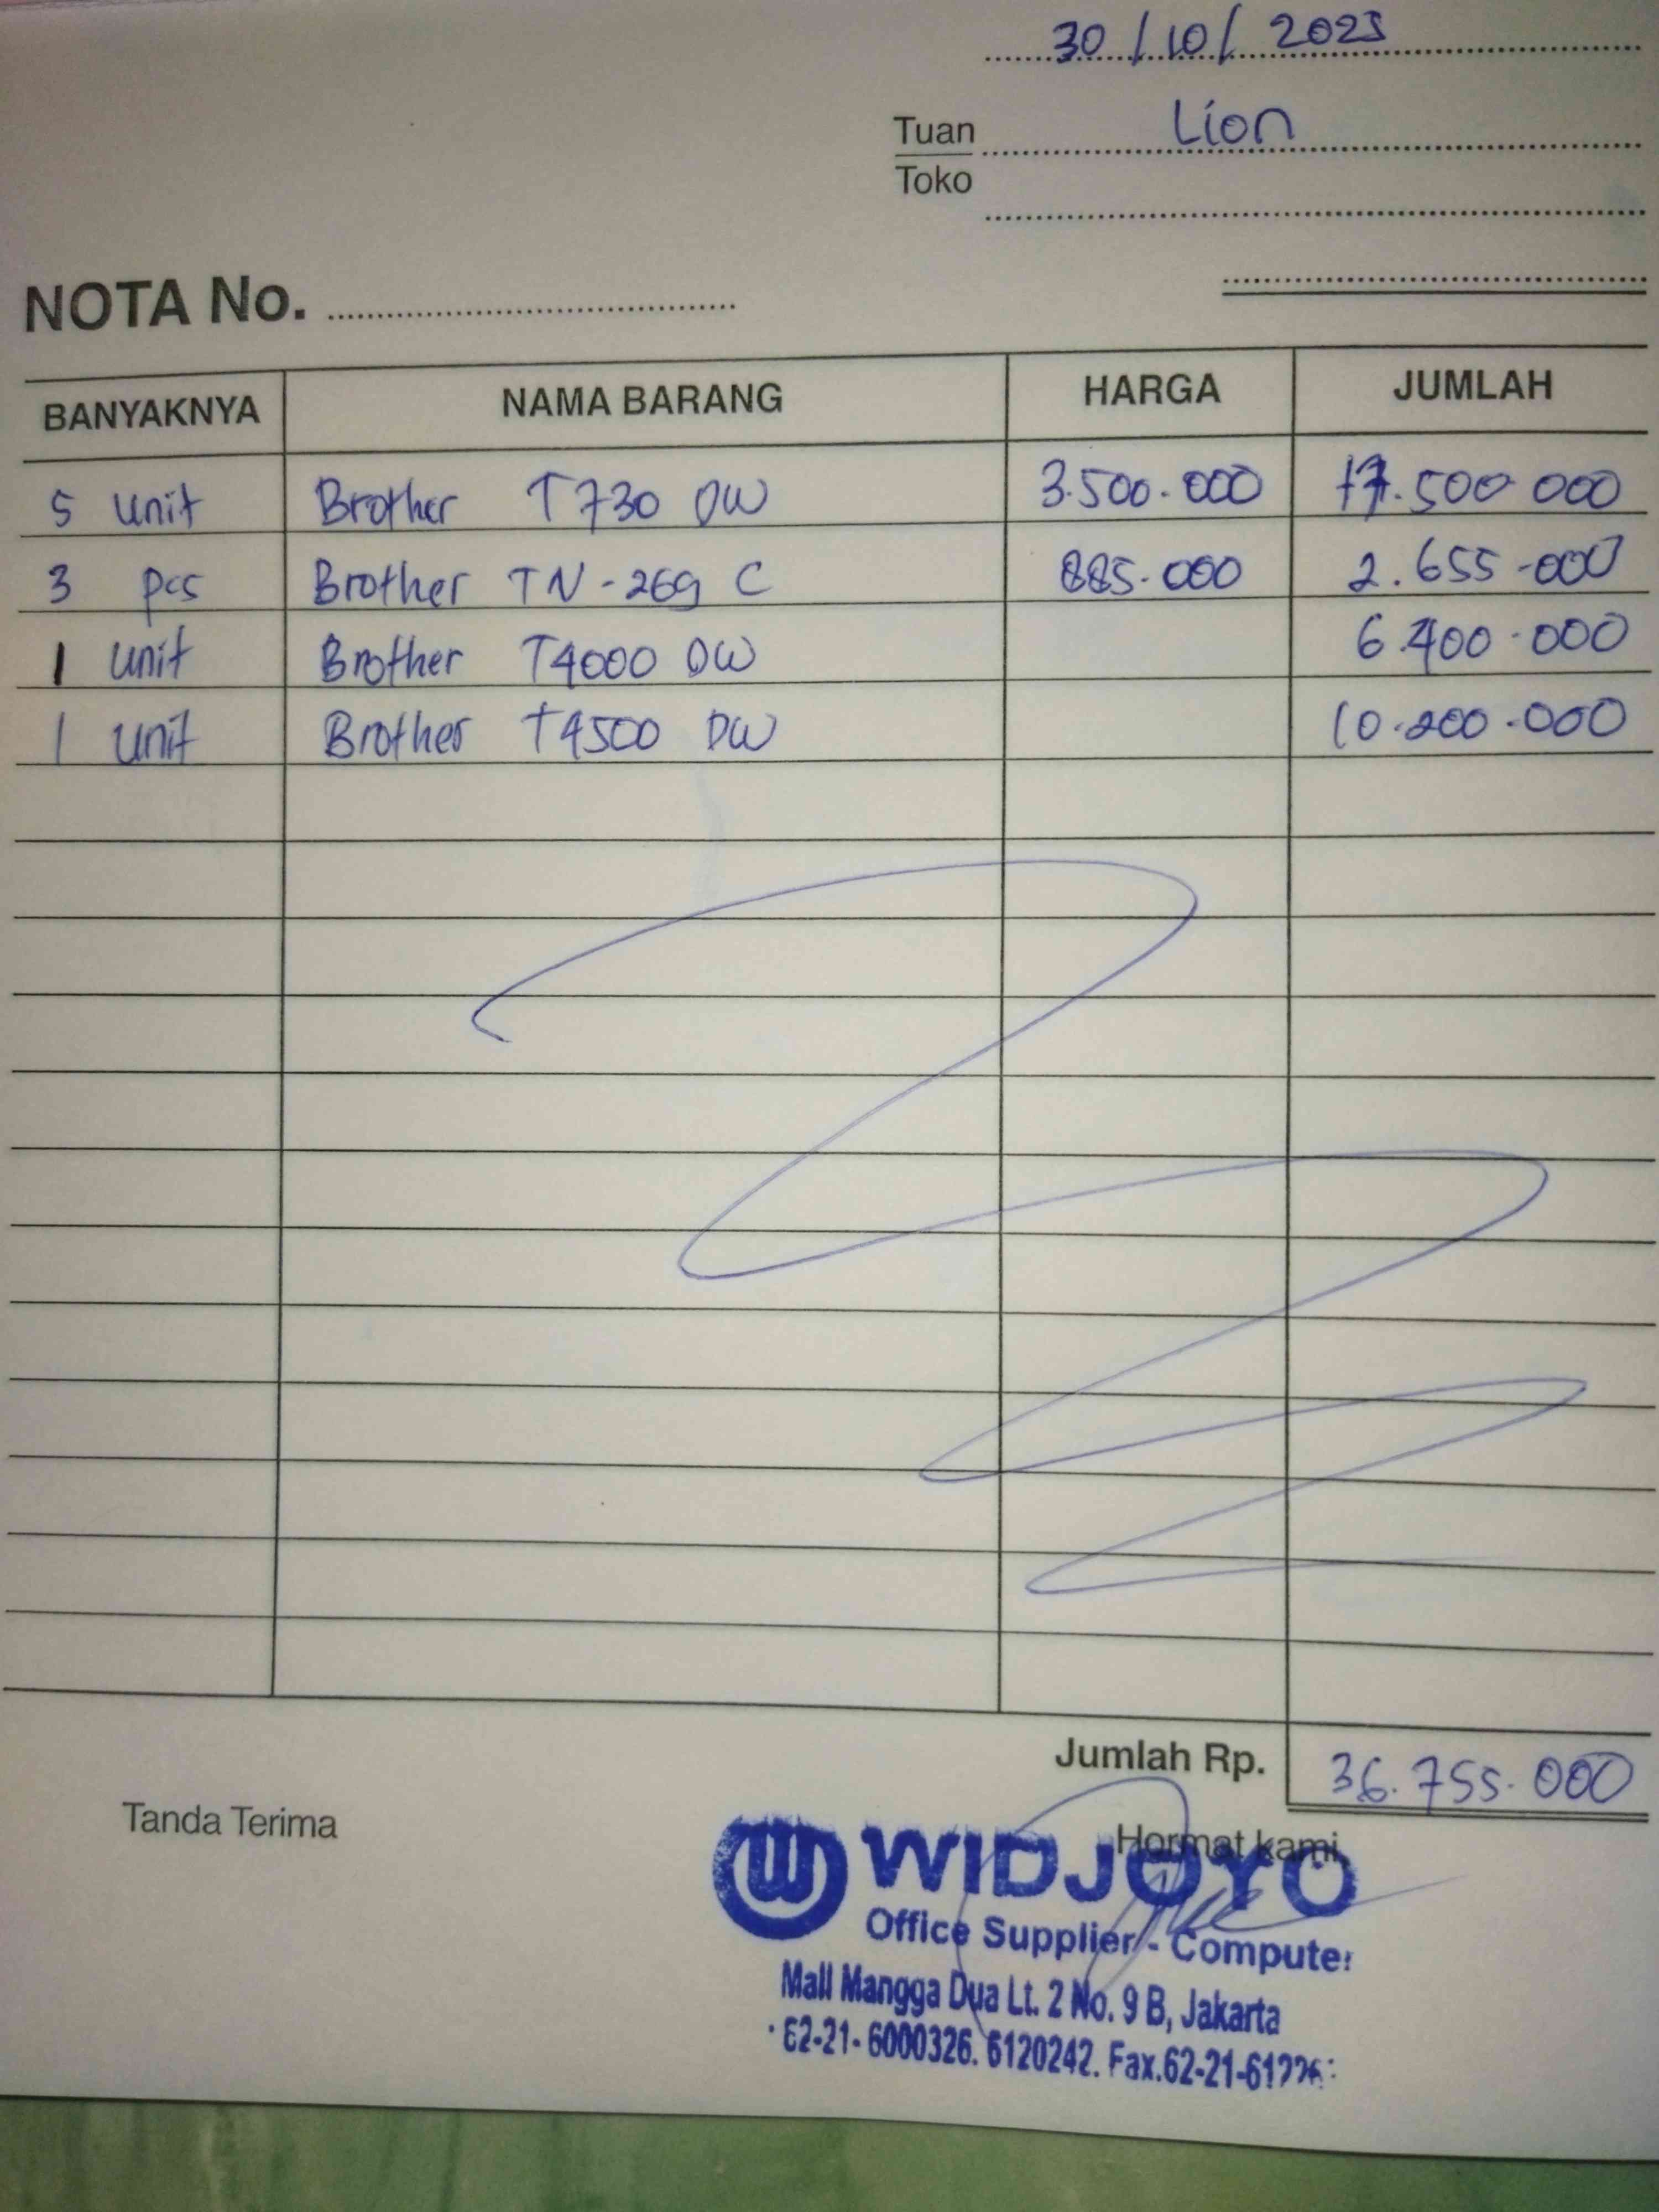 30/10/2025
Tuan Lion
Toko
NOTA No.
BANYAKNYA NAMA BARANG HARGA JUMLAH
5 unit Brother T730 DW 3.500.000 17.500.000
3 pcs Brother TN-269 C 885.000 2.655.000
1 unit Brother T4000 DW 6.400.000
1 unit Brother T4500 DW 10.200.000
Jumlah Rp. 36.755.000
Tanda Terima
Hormat kami,
WIDJOYO
Office Supplier - Computer
Mall Mangga Dua Lt. 2 No. 9 B, Jakarta
62-21-6000326. 6120242. Fax.62-21-